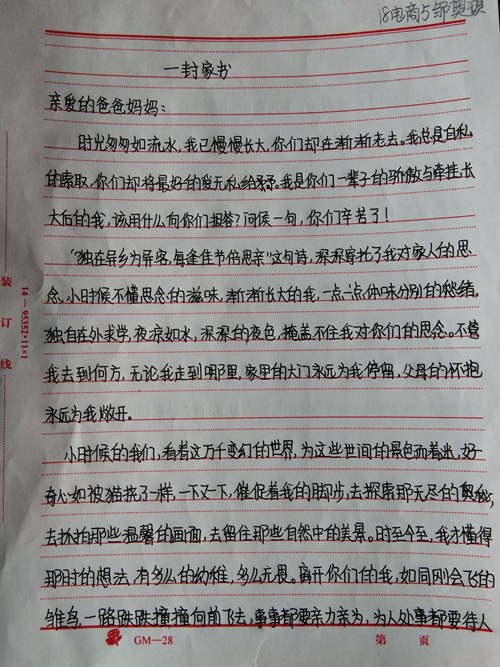 18电商5邹
一封家书
亲爱的爸爸妈妈：
时光匆匆如流水，我已慢慢长大，你们却在渐渐老去。我总是自私
的索取，你们却将最好的爱无私给予。我是你们一辈子的骄傲与牵挂，长
大后的我，该用什么向你们报答？问候一句，你们辛苦了！
“独在异乡为异客，每逢佳节倍思亲”这句诗，深深寄托了我对家人的思
念，小时候不懂思念的滋味，渐渐长大的我，一点一点体味分别的愁绪，
独自在外求学，夜凉如水，深深的夜色，掩盖不住我对你们的思念。不管
我去到何方，无论我走到哪里，家里的大门永远为我停留，父母的怀抱
永远为我敞开。
小时候的我们，看着这万千变幻的世界，为这些世间的景色而着迷，好
奇心如被猫挠了一样，一下又一下，催促着我的脚步，去探索那无尽的奥秘，
去抓拍那些温馨的画面，去留住那些自然中的美景。时至今至，我才懂得
那时的想法，有多么的幼稚，多么无畏。离开你们的我，如同刚会飞的
雏鸟，一路跌跌撞撞向前飞去，事事都要亲力亲为，为人处事都要待人
装订线
14—95352·11×1
GM—28
第 页